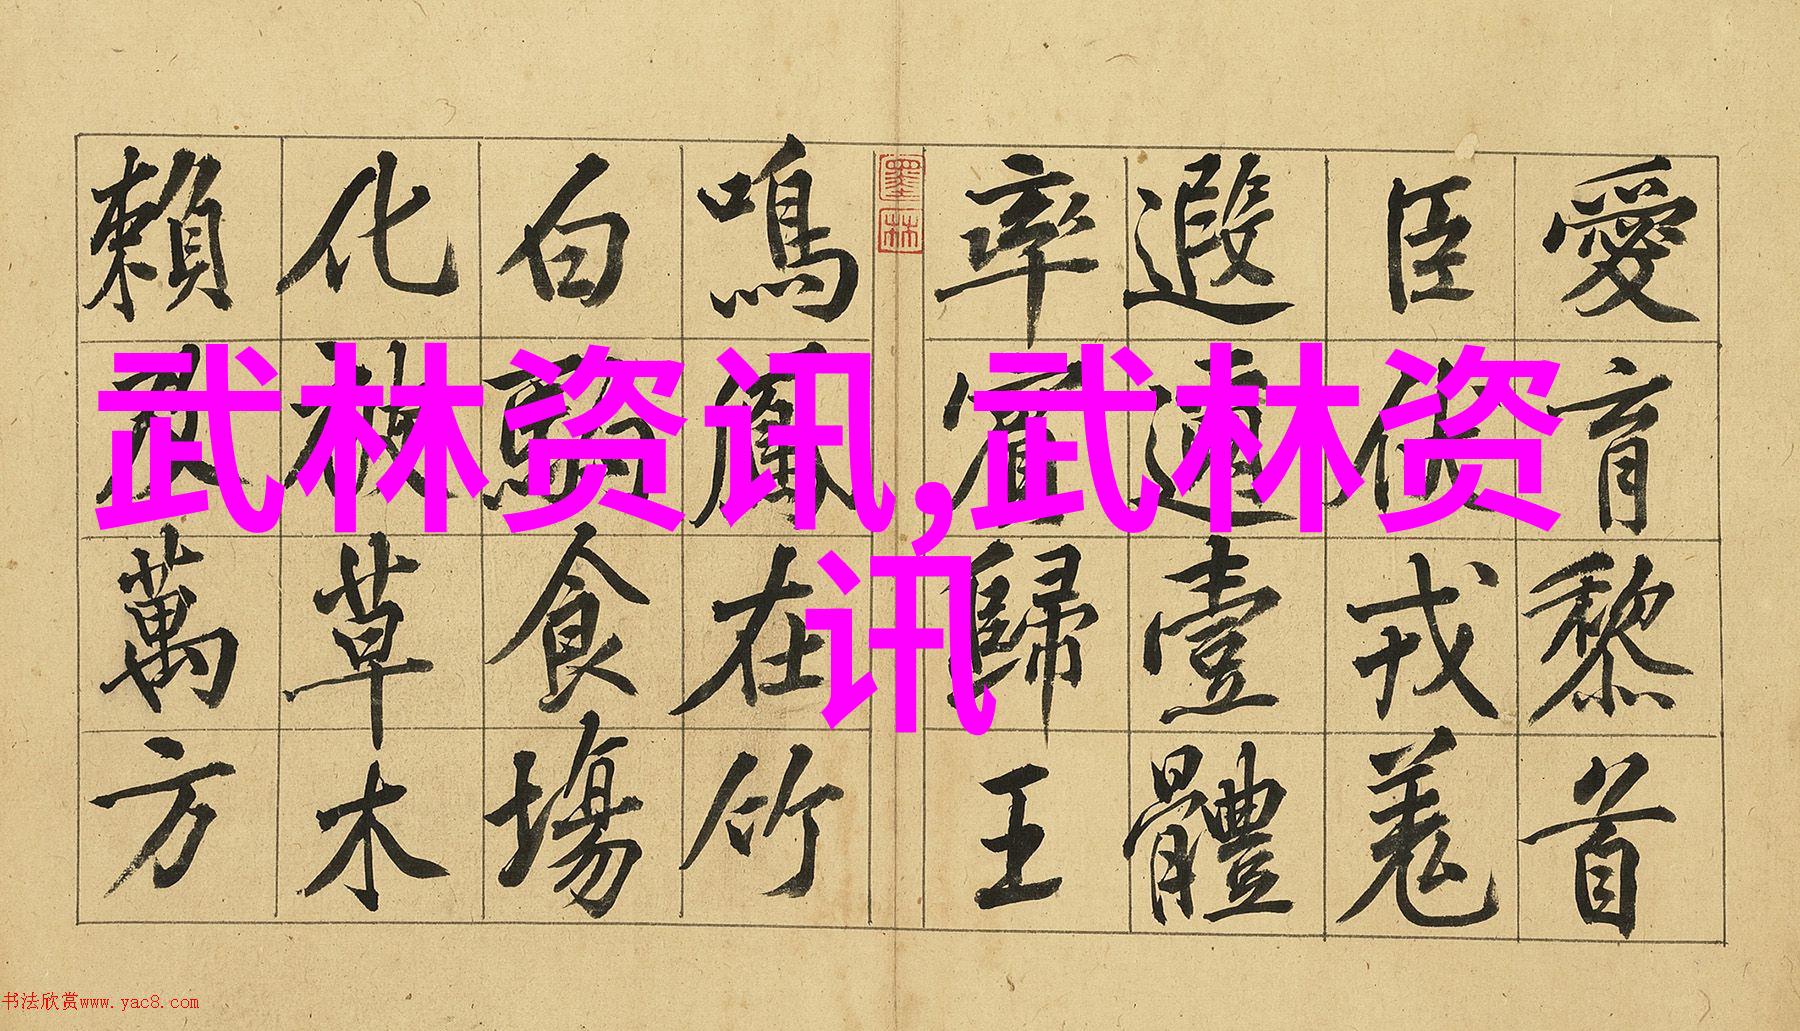 愛育黎首
臣伏戎羌
遐邇壹體
率賓歸王
鳴鳳在竹
白駒食場
化被草木
賴及萬方
墨林
武林资讯,武林资
讯
书法欣赏www.yac8.com